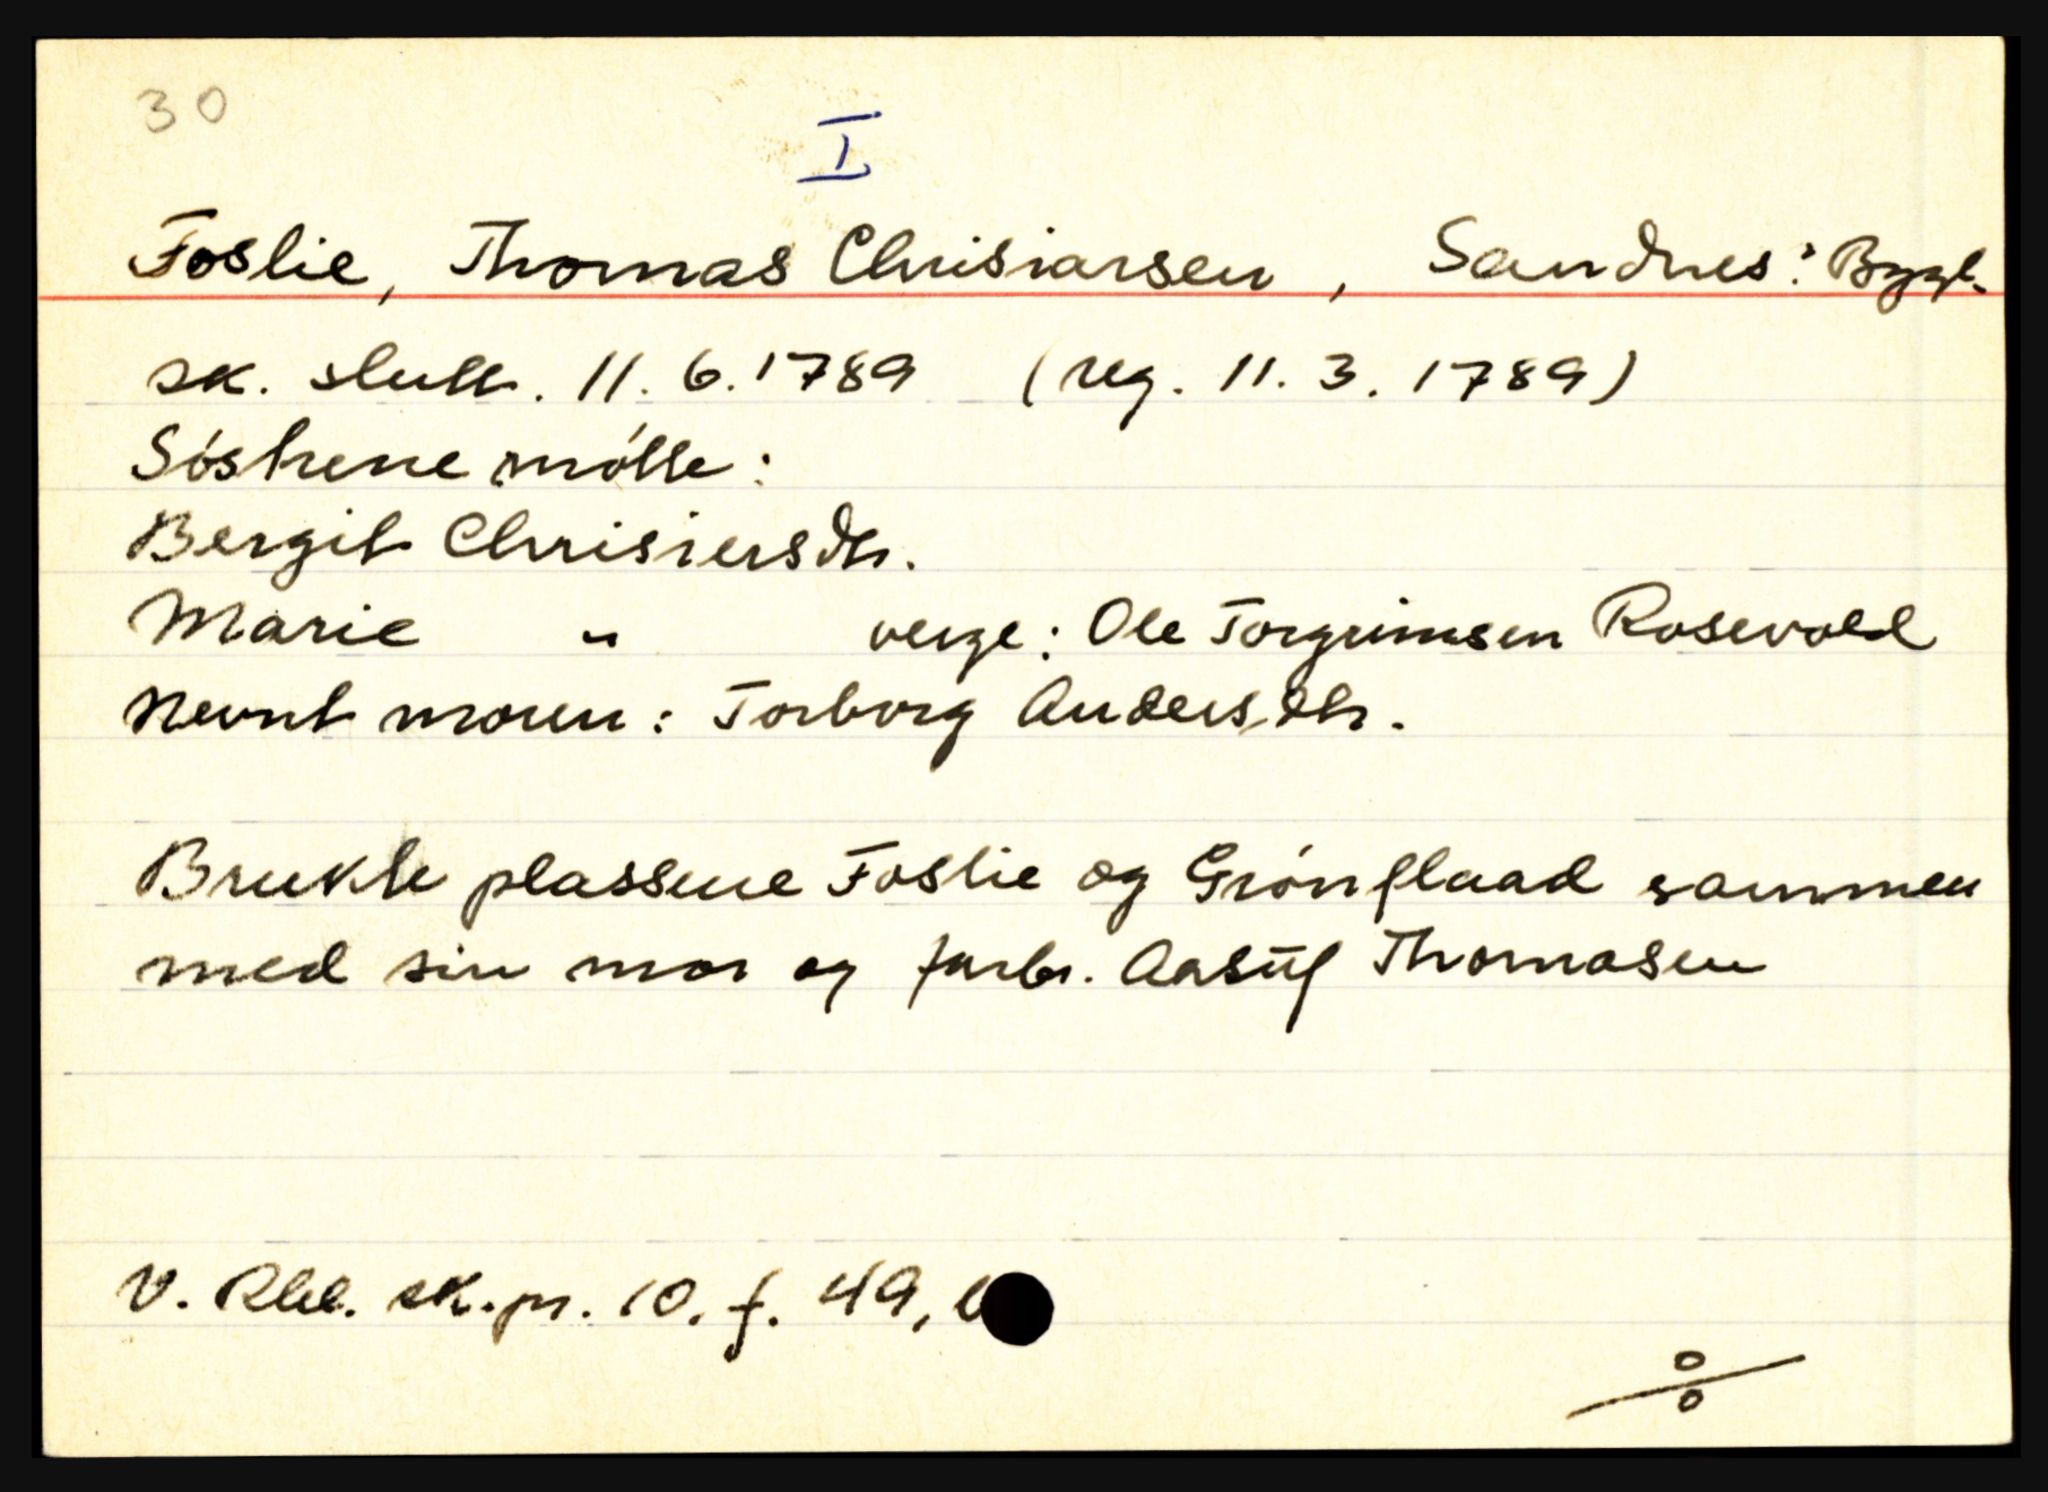 30
I
Foslie, Thomas Chrisiansen, Sandnes: Bygl.
sk. slutt. 11.6.1789 (reg. 11.3.1789)
Søstrene møtte:
Bergit Chrisiensdtr.
Marie " verge: Ole Torgrimsen Rosevold
Nevnt moren: Torborg Andersdtr.
Brukte plassene Foslie og Grønflaad sammen
med sin mor og farbr. Aasuf Thomasen
V. Rbd. sk.pr. 10. f. 49, b
%